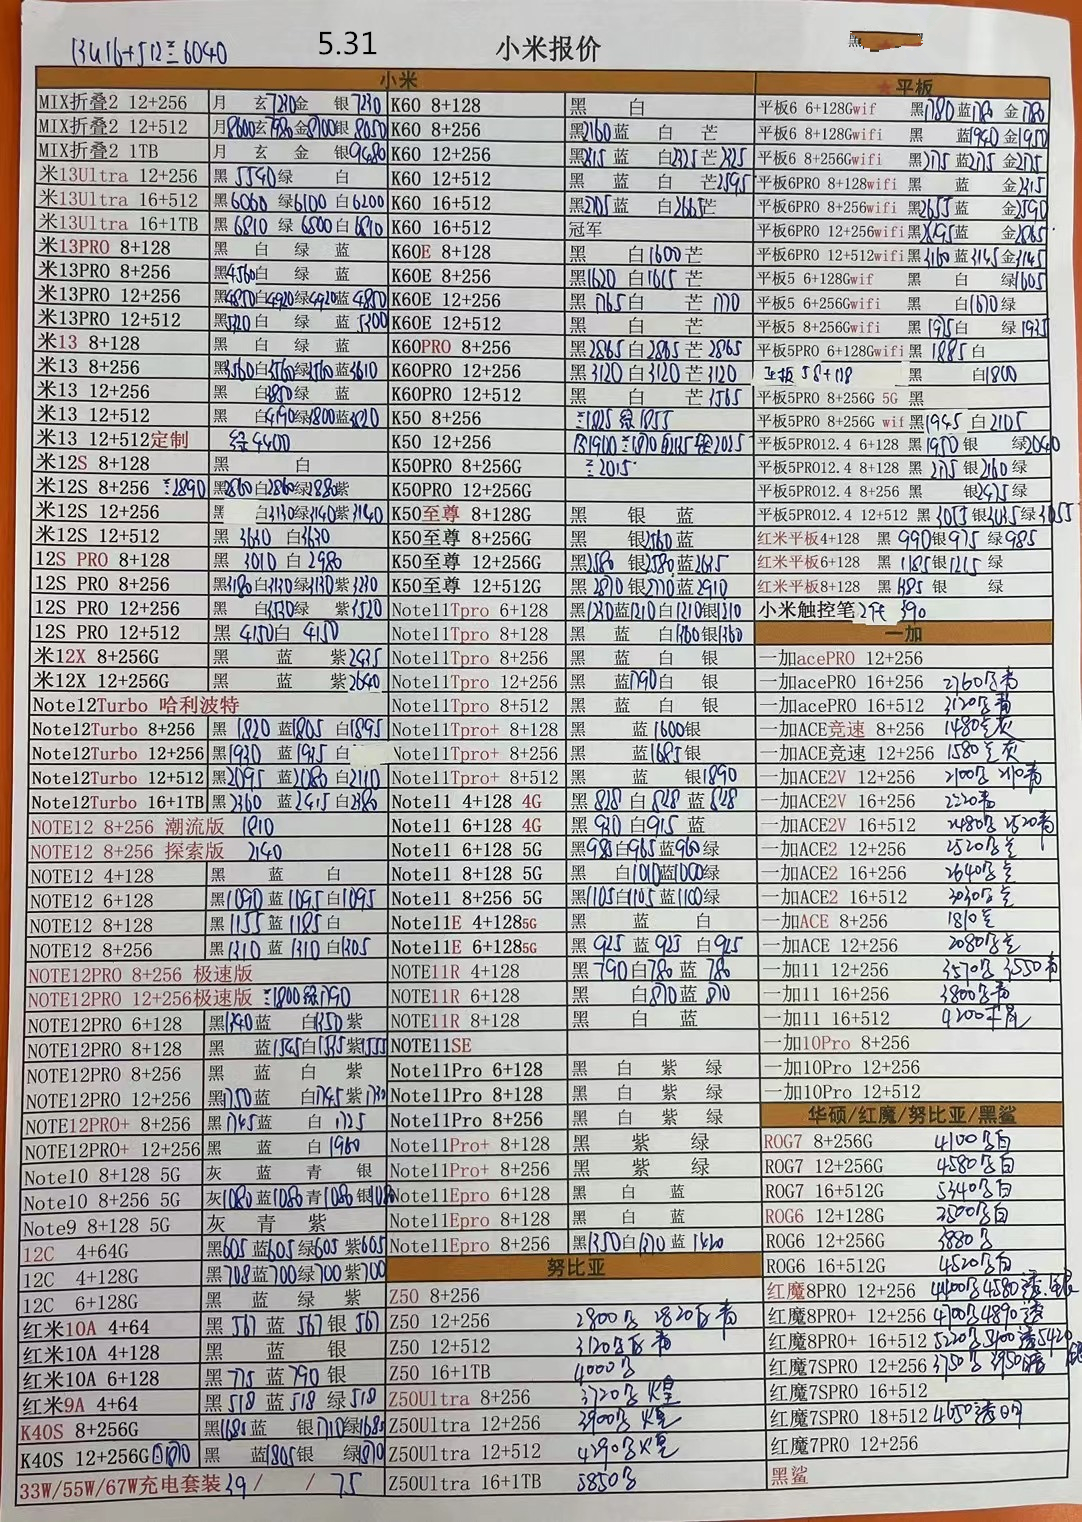 13U 16+512 6040
5.31
小米报价
黑
小米
MIX折叠2 12+256 月 玄7230金 银7230
MIX折叠2 12+512 月8600玄7980金8100银8050
MIX折叠2 1TB 月 玄 金 银9480
米13Ultra 12+256 黑 5540绿 白
米13Ultra 16+512 黑 6060 绿6100 白6200
米13Ultra 16+1TB 黑 6810 绿 6800白6810
米13PRO 8+128 黑 白 绿 蓝
米13PRO 8+256 黑4560白 绿 蓝
米13PRO 12+256 黑4850白4920绿4920蓝 4850
米13PRO 12+512 黑5320白 绿 蓝 5300
米13 8+128 黑 白 绿 蓝
米13 8+256 黑3560白3560绿3560蓝3610
米13 12+256 黑 白3850绿 蓝
米13 12+512 黑 白4190绿3800蓝3820
米13 12+512定制 绿4400
米12S 8+128 黑 白
米12S 8+256 2890 黑2860白2860绿2880紫
米12S 12+256 黑 白3130绿3140紫3140
米12S 12+512 黑 3630 白3630
12S PRO 8+128 黑 3010 白 2980
12S PRO 8+256 黑3180白3130绿3130紫3230
12S PRO 12+256 黑 白3530绿 紫3520
12S PRO 12+512 黑 4150白 4150
米12X 8+256G 黑 蓝 紫2435
米12X 12+256G 黑 蓝 紫2640
Note12Turbo 哈利波特
Note12Turbo 8+256 黑 1820 蓝1805 白1895
Note12Turbo 12+256 黑1930 蓝1935 白
Note12Turbo 12+512 黑2095 蓝2080 白2110
Note12Turbo 16+1TB 黑2360 蓝2415 白2380
NOTE12 8+256 潮流版 1810
NOTE12 8+256 探索版 2140
NOTE12 4+128 黑 蓝 白
NOTE12 6+128 黑1090 蓝1095白1095
NOTE12 8+128 黑1155 蓝1185白
NOTE12 8+256 黑1310 蓝1310 白1305
NOTE12PRO 8+256 极速版
NOTE12PRO 12+256极速版 1800绿1790
NOTE12PRO 6+128 黑1340蓝 白1350紫
NOTE12PRO 8+128 黑 蓝1545白1535紫1555
NOTE12PRO 8+256 黑 蓝 白 紫
NOTE12PRO 12+256 黑1750蓝 白1745紫1730
NOTE12PRO+ 8+256 黑1745蓝 白 1725
NOTE12PRO+ 12+256 黑 蓝 白1960
Note10 8+128 5G 灰 蓝 青 银
Note10 8+256 5G 灰1080蓝1080青1080银
Note9 8+128 5G 灰 青 紫
12C 4+64G 黑605 蓝605 绿605 紫605
12C 4+128G 黑708蓝700绿700紫700
12C 6+128G 黑 蓝 绿 紫
红米10A 4+64 黑 567 蓝 567银567
红米10A 4+128 黑 蓝 银
红米10A 6+128 黑 775 蓝 790 银
红米9A 4+64 黑518 蓝518 绿518
K40S 8+256G 黑1685蓝 银1710绿1685
K40S 12+256G 1870 黑 蓝1805银 绿1870
33W/55W/67W充电套装 39 / / 75
K60 8+128 黑 白
K60 8+256 黑2160蓝 白 芒
K60 12+256 黑2315 蓝 白2325芒2325
K60 12+512 黑 蓝 白 芒2595
K60 16+512 黑2705蓝 白2665芒
K60 16+512 冠军
K60E 8+128 黑 白1600芒
K60E 8+256 黑1620 白1615芒
K60E 12+256 黑 1765白 芒 1770
K60E 12+512 黑 白 芒
K60PRO 8+256 黑2865白2865芒2865
K60PRO 12+256 黑3120白3120芒3120
K60PRO 12+512 黑 白 芒3565
K50 8+256 1825 绿1855
K50 12+256
K50PRO 8+256G 2015
K50PRO 12+256G
K50至尊 8+128G 黑 银 蓝
K50至尊 8+256G 黑 银2560蓝
K50至尊 12+256G 黑2580 银2580蓝2635
K50至尊 12+512G 黑2870 银2770蓝2910
Note11Tpro 6+128 黑1230蓝1210白1210银1210
Note11Tpro 8+128 黑 蓝 白1360银1360
Note11Tpro 8+256 黑 蓝 白 银
Note11Tpro 12+256 黑 蓝1790白 银
Note11Tpro 8+512 黑 蓝 白 银
Note11Tpro+ 8+128 黑 蓝1600银
Note11Tpro+ 8+256 黑 蓝1685银
Note11Tpro+ 8+512 黑 蓝 银1890
Note11 4+128 4G 黑 828 白 828 蓝 828
Note11 6+128 4G 黑 930 白915 蓝
Note11 6+128 5G 黑985白965蓝960绿
Note11 8+128 5G 黑 白1010蓝1000绿
Note11 8+256 5G 黑1105白1105蓝1100绿
Note11E 4+1285G 黑 蓝 白
Note11E 6+1285G 黑 925 蓝 925 白925
NOTE11R 4+128 黑 790白780 蓝 780
NOTE11R 6+128 白870 蓝 870
NOTE11R 8+128 黑 白 蓝
NOTE11SE
Note11Pro 6+128 黑 白 紫 绿
Note11Pro 8+128 黑 白 紫 绿
Note11Pro 8+256 黑 白 紫 绿
Note11Pro+ 8+128 黑 紫 绿
Note11Pro+ 8+256 黑 紫 绿
Note11Epro 6+128 黑 白 蓝
Note11Epro 8+128 黑 白 蓝
Note11Epro 8+256 黑1350白1370 蓝1420
努比亚
Z50 8+256
Z50 12+256 2800 2820 青
Z50 12+512 3120
Z50 16+1TB 4000
Z50Ultra 8+256 3720
Z50Ultra 12+256 3900
Z50Ultra 12+512 4290
Z50Ultra 16+1TB 5850
★平板
平板6 6+128Gwif 黑1780蓝1780 金1780
平板6 8+128Gwifi 黑 蓝1940金1950
平板6 8+256Gwifi 黑2175 蓝2175 金2175
平板6PRO 8+128wifi 黑 蓝 金2315
平板6PRO 8+256wifi 黑2655 蓝 金2590
平板6PRO 12+256wifi 黑2895蓝 金2865
平板6PRO 12+512wifi 黑3160蓝3145金3145
平板5 6+128Gwif 黑 白 绿1605
平板5 6+256Gwifi 黑 白1670绿
平板5 8+256Gwifi 黑 1975白 绿1935
平板5PRO 6+128Gwifi 黑 1885白
平板 5 8+128 黑 白1800
平板5PRO 8+256G 5G 黑
平板5PRO 8+256G wif 黑1945 白2105
平板5PRO12.4 6+128 黑1950银 绿2040
平板5PRO12.4 8+128 黑 2175 银2160绿
平板5PRO12.4 8+256 黑 银2475绿
平板5PRO12.4 12+512 黑 3055银3035绿3055
红米平板4+128 黑 990银975 绿985
红米平板6+128 黑 1185银1215 绿
红米平板8+128 黑 1485银 绿
小米触控笔2代 390
一加
一加acePRO 12+256
一加acePRO 16+256 2760 青
一加acePRO 16+512 3120 青
一加ACE竞速 8+256 1480 灰
一加ACE竞速 12+256 1580 灰
一加ACE2V 12+256 2100 2110青
一加ACE2V 16+256 2220青
一加ACE2V 16+512 2480 2520青
一加ACE2 12+256 2520
一加ACE2 16+256 2640
一加ACE2 16+512 3030
一加ACE 8+256 1810
一加ACE 12+256 2080
一加11 12+256 3570 3550青
一加11 16+256 3800 青
一加11 16+512 4200
一加10Pro 8+256
一加10Pro 12+256
一加10Pro 12+512
华硕/红魔/努比亚/黑鲨
ROG7 8+256G 4100 白
ROG7 12+256G 4580 白
ROG7 16+512G 5340 白
ROG6 12+128G 3500 白
ROG6 12+256G 3880
ROG6 16+512G 4520 白
红魔8PRO 12+256 4400 4580透 银
红魔8PRO+ 12+256 4700 4890透
红魔8PRO+ 16+512 5220 5400透5420
红魔7SPRO 12+256 3750 3950透
红魔7SPRO 16+512
红魔7SPRO 18+512 4650透明
红魔7PRO 12+256
黑鲨